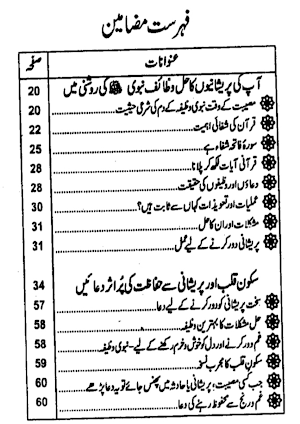 فہرست مضامین
عنوانات صفحہ
آپ کی پریشانیوں کا حل وظائف نبوی ﷺ کی روشنی میں 20
مصیبت کے وقت نبوی وظیفہ کے دم کی شرعی حیثیت 20
قرآن کی شفائی اہمیت 22
سورۂ فاتحہ شفاء ہے 25
قرآنی آیات لکھ کر پلانا 28
دعاؤں اور وظیفوں کی حقیقت 28
عملیات اور تعویذات کہاں سے ثابت ہیں؟ 30
مشکلات اور ان کا حل 31
پریشانی دور کرنے کے لیے عمل 31
سکون قلب اور پریشانی سے حفاظت کی پُر اثر دعائیں 34
سخت پریشانی کو دور کرنے کے لیے دعا 57
حل مشکلات کا بہترین وظیفہ 58
غم دور کرنے اور دل کو خوش و خرم رکھنے کے لیے - نبوی وظیفہ 58
سکون قلب کا مجرب نسخہ 59
جب کسی مصیبت، پریشانی یا حادثہ میں پھنس جائے تو یہ دعا پڑھے 60
غم و رنج سے محفوظ رہنے کی دعا 60